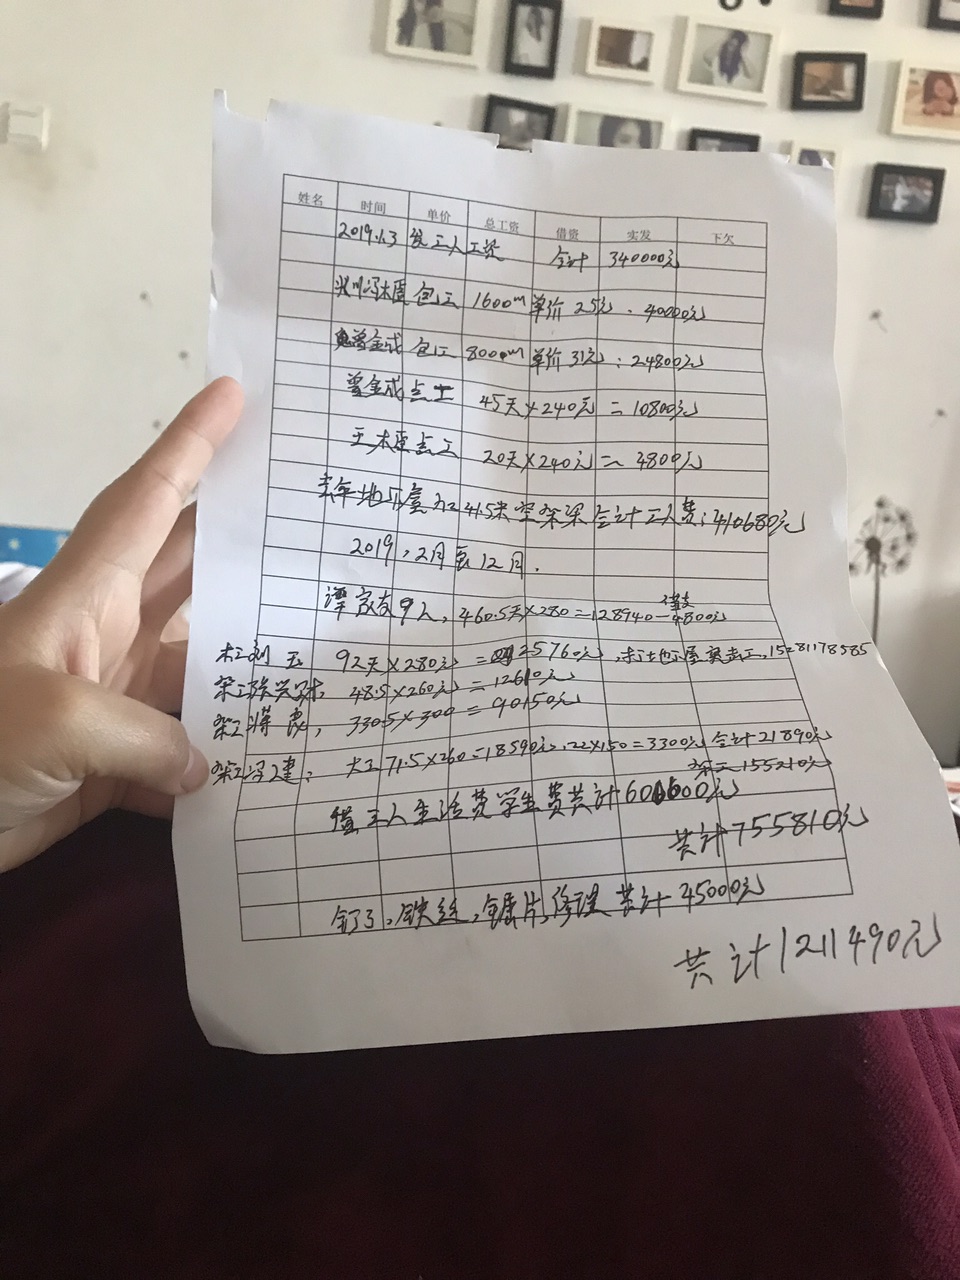 姓名 时间 单价 总工资 借资 实发 下欠
2019.1.3 发工人工资 合计 340000元
冯木匠 包工 1600m 单价25元 . 40000元
曾金成 包工 800m 单价31元 : 24800元
曾金成点工 45天×240元=10800元
王木匠点工 20天×240元=4800元
地下室 41.5米 合计工人费:410680元
2019,2月至12月.
谭家友9人, 460.5天×280=128940-4800元
木工刘玉 92天×280元=25760元, 地下屋 点工, 15281178585
架工张兴财, 48.5×260元=12610元
架工蒋良, 330.5×300=90150元
架工冯建: 大工71.5×260=18590元, 22×150=3300元 合计21890元
155210元
借工人生活费学生费共计600600元
共计755810元
钉子,铁丝,锯片,修理 共计45000元
共计1211490元